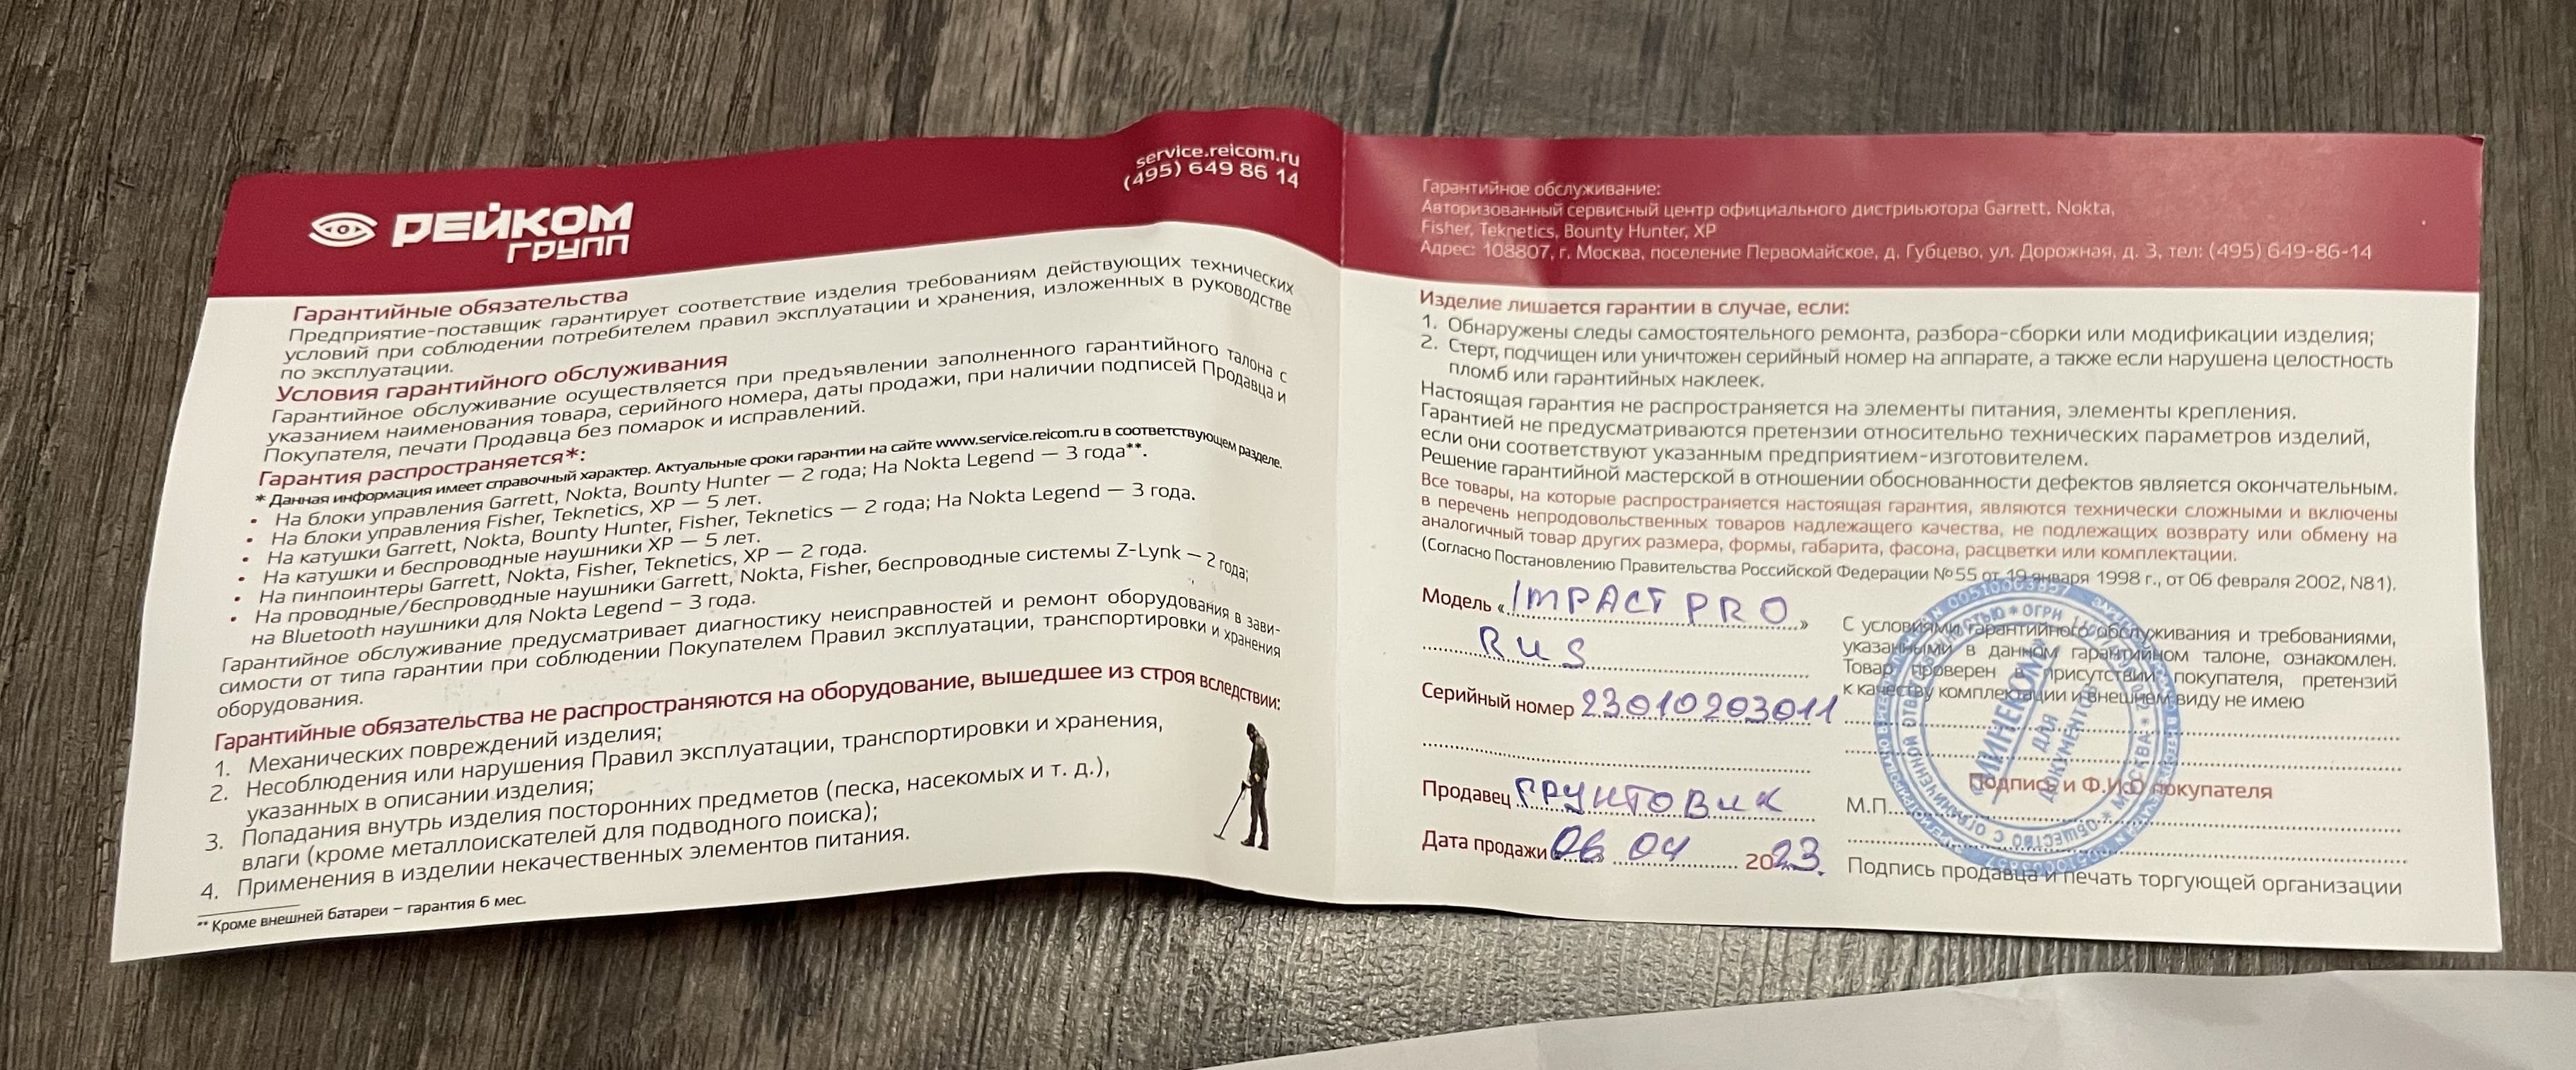 РЕЙКОМ
ГРУПП
service.reicom.ru
(495) 649 86 14
Гарантийные обязательства
Предприятие-поставщик гарантирует соответствие изделия требованиям действующих технических
условий при соблюдении потребителем правил эксплуатации и хранения, изложенных в руководстве
по эксплуатации.
Условия гарантийного обслуживания
Гарантийное обслуживание осуществляется при предъявлении заполненного гарантийного талона с
указанием наименования товара, серийного номера, даты продажи, при наличии подписей Продавца и
Покупателя, печати Продавца без помарок и исправлений.
Гарантия распространяется*:
* Данная информация имеет справочный характер. Актуальные сроки гарантии на сайте www.service.reicom.ru в соответствующем разделе.
• На блоки управления Garrett, Nokta, Bounty Hunter — 2 года; На Nokta Legend — 3 года**.
• На блоки управления Fisher, Teknetics, XP — 5 лет.
• На катушки Garrett, Nokta, Bounty Hunter, Fisher, Teknetics — 2 года; На Nokta Legend — 3 года.
• На катушки и беспроводные наушники XP — 5 лет.
• На пинпоинтеры Garrett, Nokta, Fisher, Teknetics, XP — 2 года.
• На проводные/беспроводные наушники Garrett, Nokta, Fisher, беспроводные системы Z-Lynk — 2 года;
на Bluetooth наушники для Nokta Legend – 3 года.
Гарантийное обслуживание предусматривает диагностику неисправностей и ремонт оборудования в зави-
симости от типа гарантии при соблюдении Покупателем Правил эксплуатации, транспортировки и хранения
оборудования.
Гарантийные обязательства не распространяются на оборудование, вышедшее из строя вследствии:
1. Механических повреждений изделия;
2. Несоблюдения или нарушения Правил эксплуатации, транспортировки и хранения,
указанных в описании изделия;
3. Попадания внутрь изделия посторонних предметов (песка, насекомых и т. д.),
влаги (кроме металлоискателей для подводного поиска);
4. Применения в изделии некачественных элементов питания.
** Кроме внешней батареи – гарантия 6 мес.
Гарантийное обслуживание:
Авторизованный сервисный центр официального дистриьютора Garrett, Nokta,
Fisher, Teknetics, Bounty Hunter, XP
Адрес: 108807, г. Москва, поселение Первомайское, д. Губцево, ул. Дорожная, д. 3, тел: (495) 649-86-14
Изделие лишается гарантии в случае, если:
1. Обнаружены следы самостоятельного ремонта, разбора-сборки или модификации изделия;
2. Стерт, подчищен или уничтожен серийный номер на аппарате, а также если нарушена целостность
пломб или гарантийных наклеек.
Настоящая гарантия не распространяется на элементы питания, элементы крепления.
Гарантией не предусматриваются претензии относительно технических параметров изделий,
если они соответствуют указанным предприятием-изготовителем.
Решение гарантийной мастерской в отношении обоснованности дефектов является окончательным.
Все товары, на которые распространяется настоящая гарантия, являются технически сложными и включены
в перечень непродовольственных товаров надлежащего качества, не подлежащих возврату или обмену на
аналогичный товар других размера, формы, габарита, фасона, расцветки или комплектации.
(Согласно Постановлению Правительства Российской Федерации №55 от 19 января 1998 г., от 06 февраля 2002, N81).
Модель «IMPACT PRO»
RUS
Серийный номер 23010203011
Продавец ГРУНТОВИК
Дата продажи 06 04 2023.
С условиями гарантийного обслуживания и требованиями,
указанными в данном гарантийном талоне, ознакомлен.
Товар проверен в присутствии покупателя, претензий
к качеству комплектации и внешнем виду не имею
Подпись и Ф.И.О покупателя
М.П.
Подпись продавца и печать торгующей организации
ДЛЯ
ДОКУМЕНТОВ
ОБЩЕСТВО С ОГРАНИЧЕННОЙ ОТВЕТСТВЕННОСТЬЮ * ОГРН
* МОСКВА *